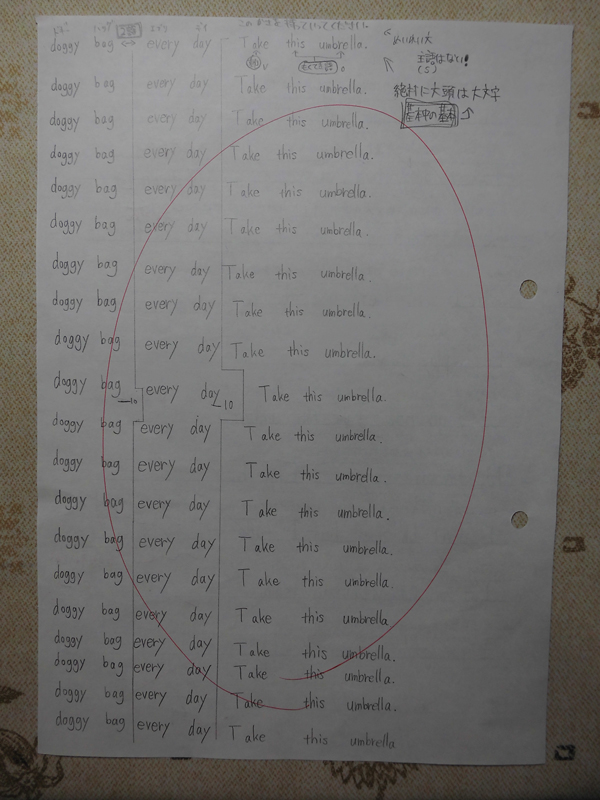 この傘を持っていってください。
doggy bag ↔ every day Take this umbrella.
めいれい文
主語はない!
(S)
動 V
もくてき語 O
doggy bag every day Take this umbrella.
絶対に大頭は大文字
基本中の基本
doggy bag every day Take this umbrella.
doggy bag every day Take this umbrella.
doggy bag every day Take this umbrella.
doggy bag every day Take this umbrella.
doggy bag every day Take this umbrella.
doggy bag every day Take this umbrella.
doggy bag every day Take this umbrella.
doggy bag every day Take this umbrella.
10 10
doggy bag every day Take this umbrella.
doggy bag every day Take this umbrella.
doggy bag every day Take this umbrella.
doggy bag every day Take this umbrella.
doggy bag every day Take this umbrella.
doggy bag every day Take this umbrella
doggy bag every day Take this umbrella.
doggy bag every day Take this umbrella.
doggy bag every day Take this umbrella.
doggy bag every day Take this umbrella